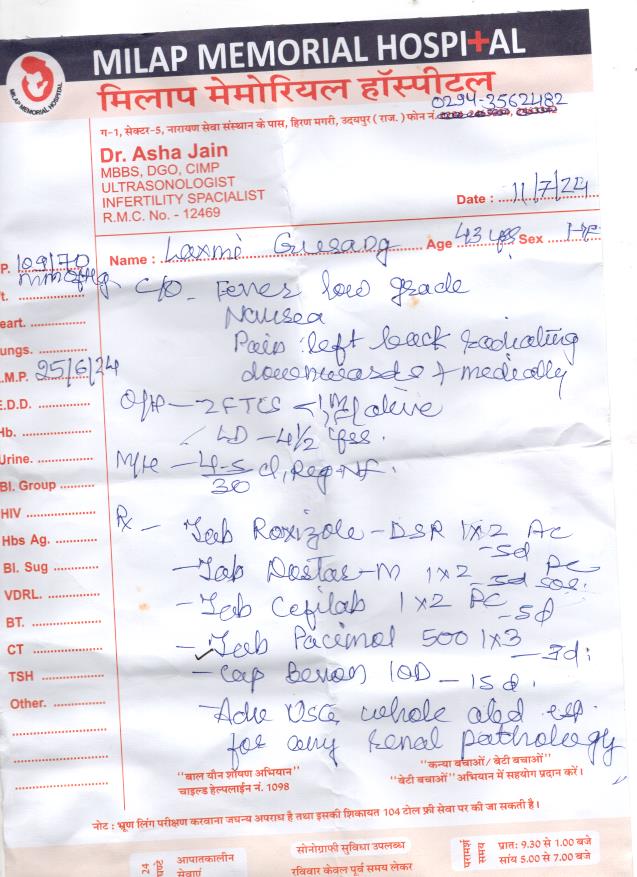 MILAP MEMORIAL HOSPITAL
MILAP MEMORIAL HOSPITAL
मिलाप मेमोरियल हॉस्पीटल
0294-3562482
ग-1, सेक्टर-5, नारायण सेवा संस्थान के पास, हिरण मगरी, उदयपुर ( राज. ) फोन नं.
Dr. Asha Jain
MBBS, DGO, CIMP
ULTRASONOLOGIST
INFERTILITY SPACIALIST
R.M.C. No. - 12469
Date : 11/7/24
P. 109/70
mmofHg
Name : Laxmi Age 43 yrs Sex
t.
C/O - Fever low grade
Nausea
eart.
Pain left back radiating
ungs.
downwards + medically
.M.P. 25/6/24
E.D.D.
O/H - 2FTCS - alive
Hb.
LD - 4½ yrs.
Urine.
M/H - 4-5/30 d, Reg NF.
Bl. Group
HIV
Rx - Tab Roxizole - DSR 1x2 AC
- 5d
Hbs Ag.
- Tab Dostar-M 1x2 PC
- 5d sos.
Bl. Sug
- Tab Cefilab 1x2 PC
- 5d
VDRL.
BT.
- Tab Pacimol 500 1x3
- 3d.
CT
- Cap 1OD - 15d.
TSH
- Adv USG whole abd esp
Other.
for any renal pathology
"बाल यौन शोषण अभियान"
चाइल्ड हेल्पलाईन नं. 1098
"कन्या बचाओं/ बेटी बचाओं"
"बेटी बचाओं" अभियान में सहयोग प्रदान करें।
नोट : भ्रूण लिंग परीक्षण करवाना जघन्य अपराध है तथा इसकी शिकायत 104 टोल फ्री सेवा पर की जा सकती है।
24 घण्टे
आपातकालीन
सेवाएं
सोनोग्राफी सुविधा उपलब्ध
रविवार केवल पूर्व समय लेकर
परामर्श समय
प्रातः 9.30 से 1.00 बजे
सांय 5.00 से 7.00 बजे